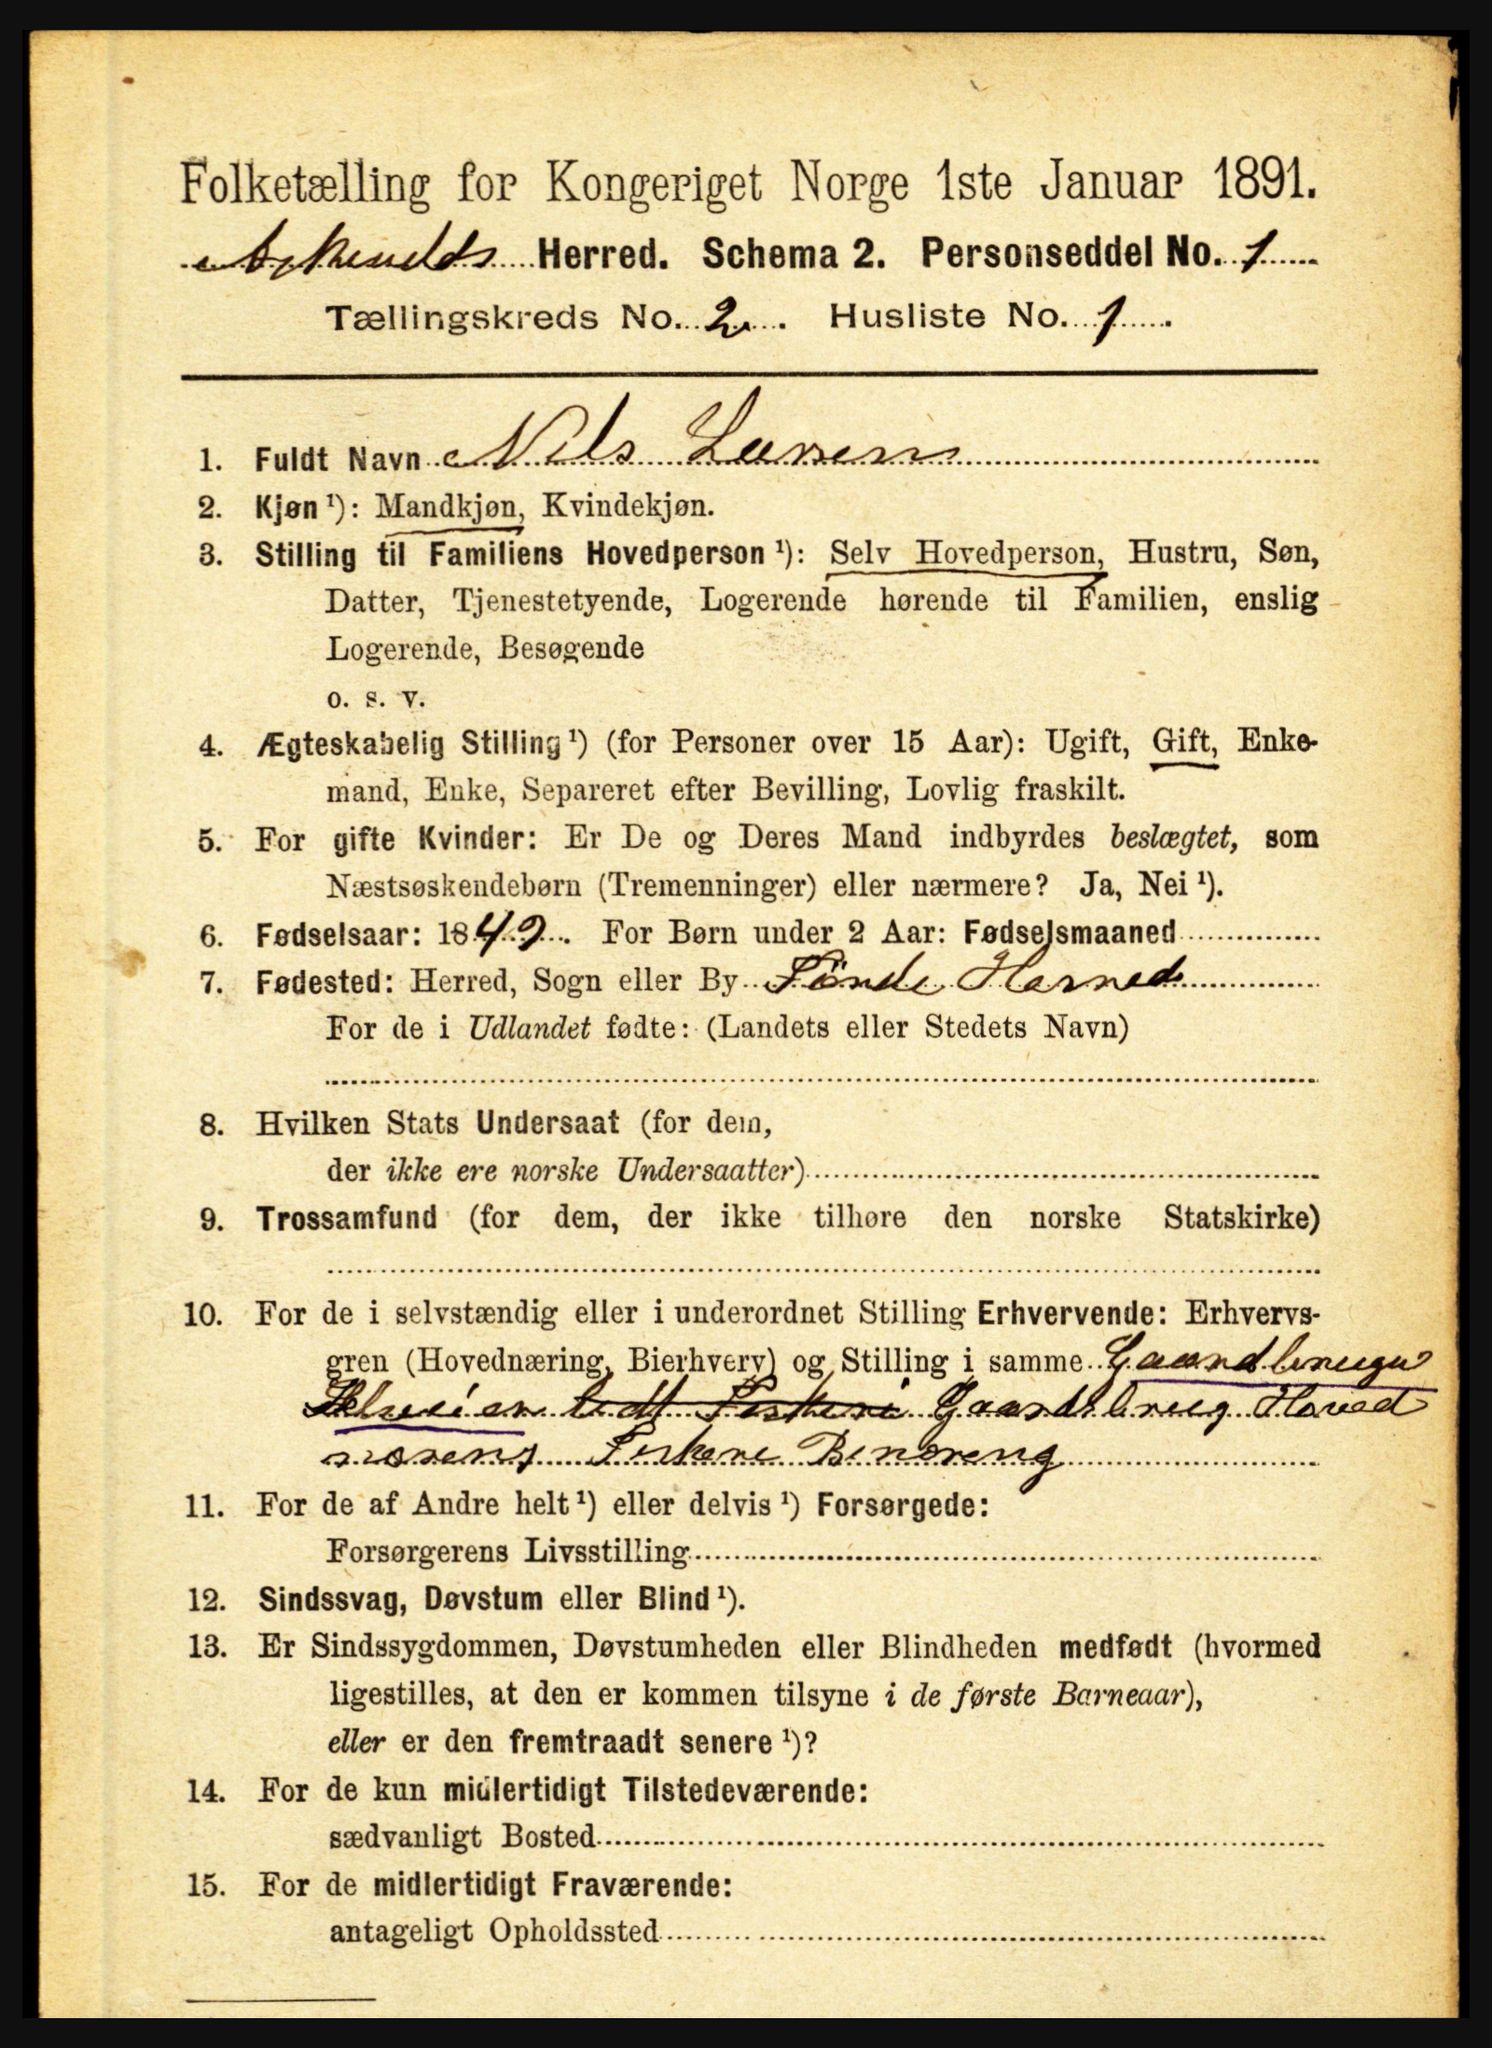 Folketælling for Kongeriget Norge 1ste Januar 1891.
Askevolds Herred. Schema 2. Personseddel No. 1
Tællingskreds No. 2. Husliste No. 1.
1. Fuldt Navn Nils Larsen
2. Kjøn ¹): Mandkjøn, Kvindekjøn.
3. Stilling til Familiens Hovedperson ¹): Selv Hovedperson, Hustru, Søn,
Datter, Tjenestetyende, Logerende hørende til Familien, enslig
Logerende, Besøgende
o. s. v.
4. Ægteskabelig Stilling ¹) (for Personer over 15 Aar): Ugift, Gift, Enke-
mand, Enke, Separeret efter Bevilling, Lovlig fraskilt.
5. For gifte Kvinder: Er De og Deres Mand indbyrdes beslægtet, som
Næstsøskendebørn (Tremenninger) eller nærmere? Ja, Nei ¹).
6. Fødselsaar: 1849. For Børn under 2 Aar: Fødselsmaaned
7. Fødested: Herred, Sogn eller By Førde Herred
For de i Udlandet fødte: (Landets eller Stedets Navn)
8. Hvilken Stats Undersaat (for dem,
der ikke ere norske Undersaatter)
9. Trossamfund (for dem, der ikke tilhøre den norske Statskirke)
10. For de i selvstændig eller i underordnet Stilling Erhvervende: Erhvervs-
gren (Hovednæring, Bierhverv) og Stilling i samme Gaardbruger
Selveier Fiskeri Gaardsbrug Hoved
næreng Fiskere Binæreng
11. For de af Andre helt ¹) eller delvis ¹) Forsørgede:
Forsørgerens Livsstilling
12. Sindssvag, Døvstum eller Blind ¹).
13. Er Sindssygdommen, Døvstumheden eller Blindheden medfødt (hvormed
ligestilles, at den er kommen tilsyne i de første Barneaar),
eller er den fremtraadt senere ¹)?
14. For de kun midlertidigt Tilstedeværende:
sædvanligt Bosted
15. For de midlertidigt Fraværende:
antageligt Opholdssted